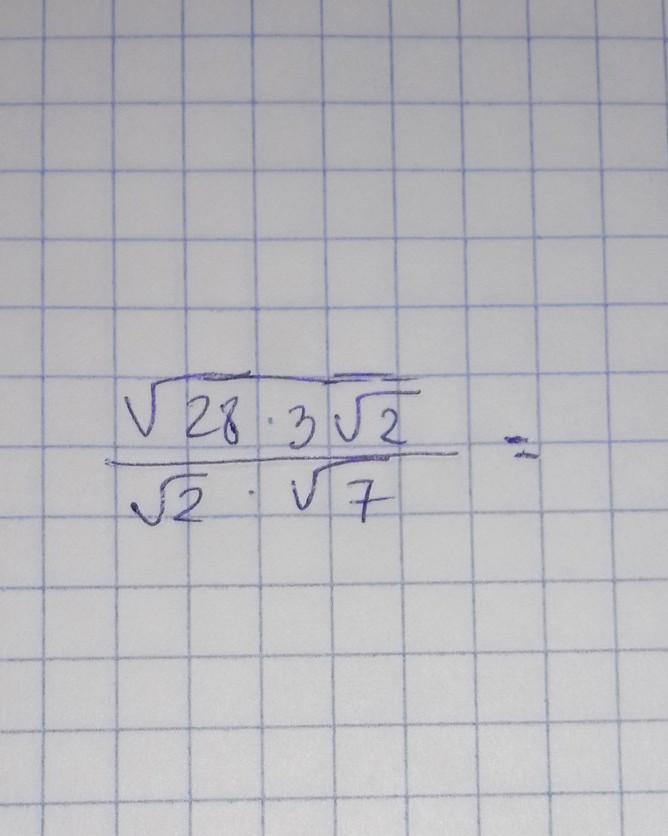 √(28 · 3√2)
√2 · √7 =